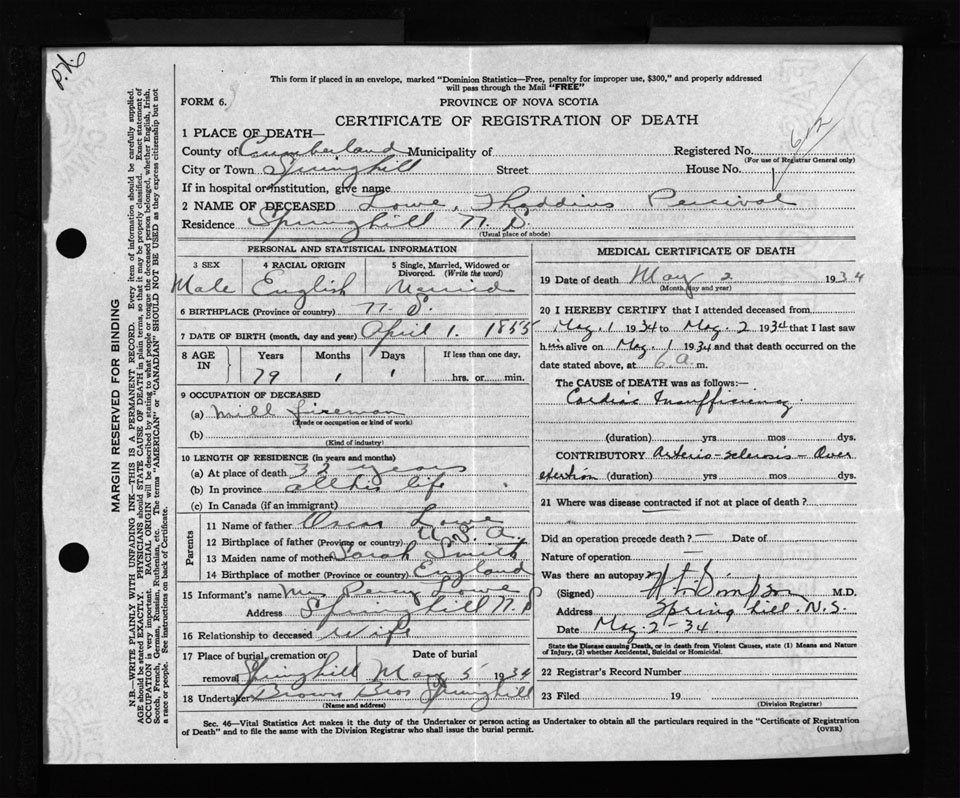 This form if placed in an envelope, marked "Dominion Statistics—Free, penalty for improper use, $300," and properly addressed
will pass through the Mail "FREE"
FORM 6.
PROVINCE OF NOVA SCOTIA
CERTIFICATE OF REGISTRATION OF DEATH
1 PLACE OF DEATH—
County of Cumberland Municipality of
Registered No.
(For use of Registrar General only)
City or Town Springhill Street House No.
If in hospital or institution, give name
2 NAME OF DECEASED Lowe, Thaddius Percival
Residence Springhill N. S.
(Usual place of abode)
PERSONAL AND STATISTICAL INFORMATION
3 SEX
Male
4 RACIAL ORIGIN
English
5 Single, Married, Widowed or
Divorced. (Write the word)
Married
6 BIRTHPLACE (Province or country) N. S.
7 DATE OF BIRTH (month, day and year) April 1. 1855
8 AGE IN
Years Months Days If less than one day,
79 1 1 hrs. or min.
9 OCCUPATION OF DECEASED
(a) Mill fireman
(Trade or occupation or kind of work)
(b)
(Kind of industry)
10 LENGTH OF RESIDENCE (in years and months)
(a) At place of death 33 years
(b) In province all his life
(c) In Canada (if an immigrant)
Parents
11 Name of father Oscar Lowe
12 Birthplace of father (Province or country) U. S. A.
13 Maiden name of mother Sarah Smith
14 Birthplace of mother (Province or country) England
15 Informant's name Mrs Percy Lowe
Address Springhill N S
16 Relationship to deceased Wife
17 Place of burial, cremation or Date of burial
removal Springhill May 5 1934
18 Undertaker Brown Bros Springhill
(Name and address)
MEDICAL CERTIFICATE OF DEATH
19 Date of death May 2 1934
(Month, day and year)
20 I HEREBY CERTIFY that I attended deceased from
May. 1 1934 to May. 2 1934 that I last saw
him alive on May. 1 1934 and that death occurred on the
date stated above, at 6 a m.
The CAUSE OF DEATH was as follows:—
Cardiac Insufficiency.
(duration) yrs mos dys.
CONTRIBUTORY Arterio-sclerosis — Over
exertion (duration) yrs mos dys.
21 Where was disease contracted if not at place of death?
Did an operation precede death? — Date of
Nature of operation —
Was there an autopsy?
(Signed) M.D.
Address Spring hill. N.S.
Date May. 2 - 34.
State the Disease causing Death, or in death from Violent Causes, state (1) Means and Nature
of Injury, (2) whether Accidental, Suicidal or Homicidal.
22 Registrar's Record Number
23 Filed 19
(Division Registrar)
Sec. 46—Vital Statistics Act makes it the duty of the Undertaker or person acting as Undertaker to obtain all the particulars required in the "Certificate of Registration
of Death" and to file the same with the Division Registrar who shall issue the burial permit.
(OVER)
MARGIN RESERVED FOR BINDING
N.B.—WRITE PLAINLY WITH UNFADING INK—THIS IS A PERMANENT RECORD. Every item of information should be carefully supplied.
AGE should be stated EXACTLY. PHYSICIANS should STATE CAUSE OF DEATH in plain terms, so that it may be properly classified. Exact statement of
OCCUPATION is very important. RACIAL ORIGIN will be described by stating to what people or tongue the deceased person belonged, whether English, Irish,
Scotch, French, German, Russian, Ruthenian, etc. The terms "AMERICAN" or "CANADIAN" SHOULD NOT BE USED as they express citizenship but not
a race or people. See instructions on back of Certificate.